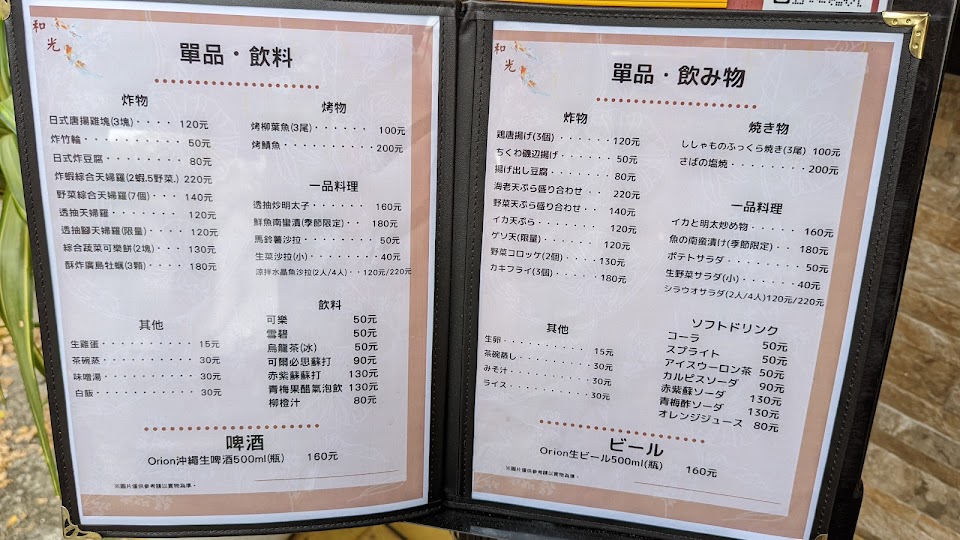 和光
單品・飲料
炸物
日式唐揚雞塊(3塊)・・・・・120元
炸竹輪・・・・・・・・・50元
日式炸豆腐・・・・・・・80元
炸蝦綜合天婦羅(2蝦.5野菜.) 220元
野菜綜合天婦羅(7個)・・・140元
透抽天婦羅・・・・・・・120元
透抽腳天婦羅(限量)・・・・120元
綜合蔬菜可樂餅(2塊)・・・130元
酥炸廣島牡蠣(3顆)・・・・180元
烤物
烤柳葉魚(3尾)・・・・・・100元
烤鯖魚・・・・・・・・・200元
一品料理
透抽炒明太子・・・・・・160元
鮮魚南蠻漬(季節限定)・・・180元
馬鈴薯沙拉・・・・・・・50元
生菜沙拉(小)・・・・・・40元
涼拌水晶魚沙拉(2人/4人)・・120元/220元
其他
生雞蛋・・・・・・・・・15元
茶碗蒸・・・・・・・・・30元
味噌湯・・・・・・・・・30元
白飯・・・・・・・・・・30元
飲料
可樂 50元
雪碧 50元
烏龍茶(冰) 50元
可爾必思蘇打 90元
赤紫蘇蘇打 130元
青梅果醋氣泡飲 130元
柳橙汁 80元
啤酒
Orion沖繩生啤酒500ml(瓶) 160元
※圖片僅供參考請以實物為準。
和光
單品・飲み物
炸物
鶏唐揚げ(3個)・・・・・・120元
ちくわ磯辺揚げ・・・・・50元
揚げ出し豆腐・・・・・・80元
海老天ぷら盛り合わせ・・220元
野菜天ぷら盛り合わせ・・140元
イカ天ぷら・・・・・・・120元
ゲソ天(限量)・・・・・・120元
野菜コロッケ(2個)・・・・130元
カキフライ(3個)・・・・・180元
焼き物
ししゃものふっくら焼き(3尾) 100元
さばの塩焼・・・・・・・200元
一品料理
イカと明太炒め物・・・・160元
魚の南蛮漬け(季節限定)・・180元
ポテトサラダ・・・・・・50元
生野菜サラダ(小)・・・・・40元
シラウオサラダ(2人/4人)120元/220元
其他
生卵・・・・・・・・・・15元
茶碗蒸し・・・・・・・・30元
みそ汁・・・・・・・・・30元
ライス・・・・・・・・・30元
ソフトドリンク
コーラ 50元
スプライト 50元
アイスウーロン茶 50元
カルピスソーダ 90元
赤紫蘇ソーダ 130元
青梅酢ソーダ 130元
オレンジジュース 80元
ビール
Orion生ビール500ml(瓶) 160元
※圖片僅供參考請以實物為準。